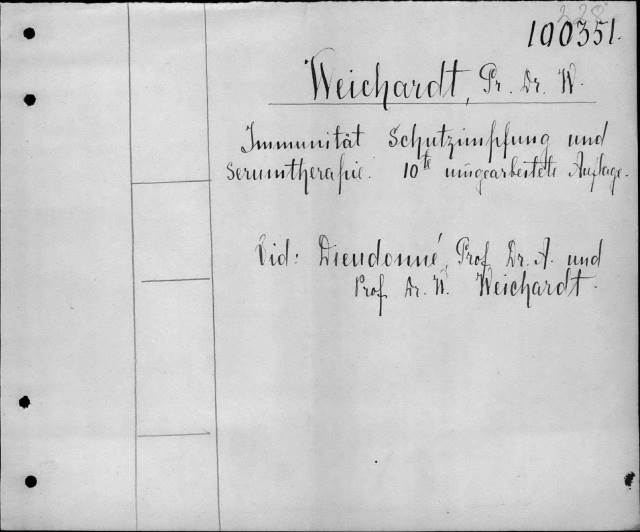 228
100351.
Weichardt, Pr. Dr. W.
Immunität Schutzimpfung und
Serumtherapie. 10te umgearbeitete Auflage.
Vid: Dieudonné, Prof Dr. A. und
Prof Dr. W. Weichardt.